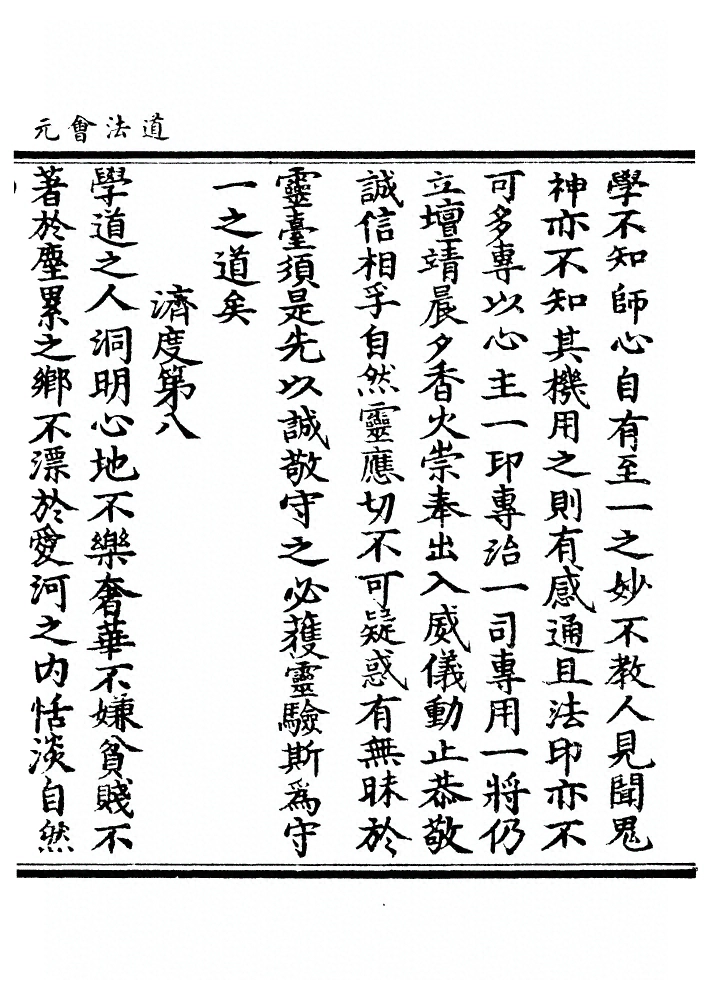 道法會元
學不知師心自有至一之妙不教人見聞鬼
神亦不知其機用之則有感通且法印亦不
可多專以心主一印專治一司專用一將仍
立壇靖晨夕香火崇奉出入威儀動止恭敬
誠信相孚自然靈應切不可疑惑有無昧於
靈臺須是先以誠敬守之必獲靈驗斯為守
一之道矣
濟度第八
學道之人洞明心地不樂奢華不嫌貧賤不
著於塵累之鄉不漂於愛河之內恬淡自然